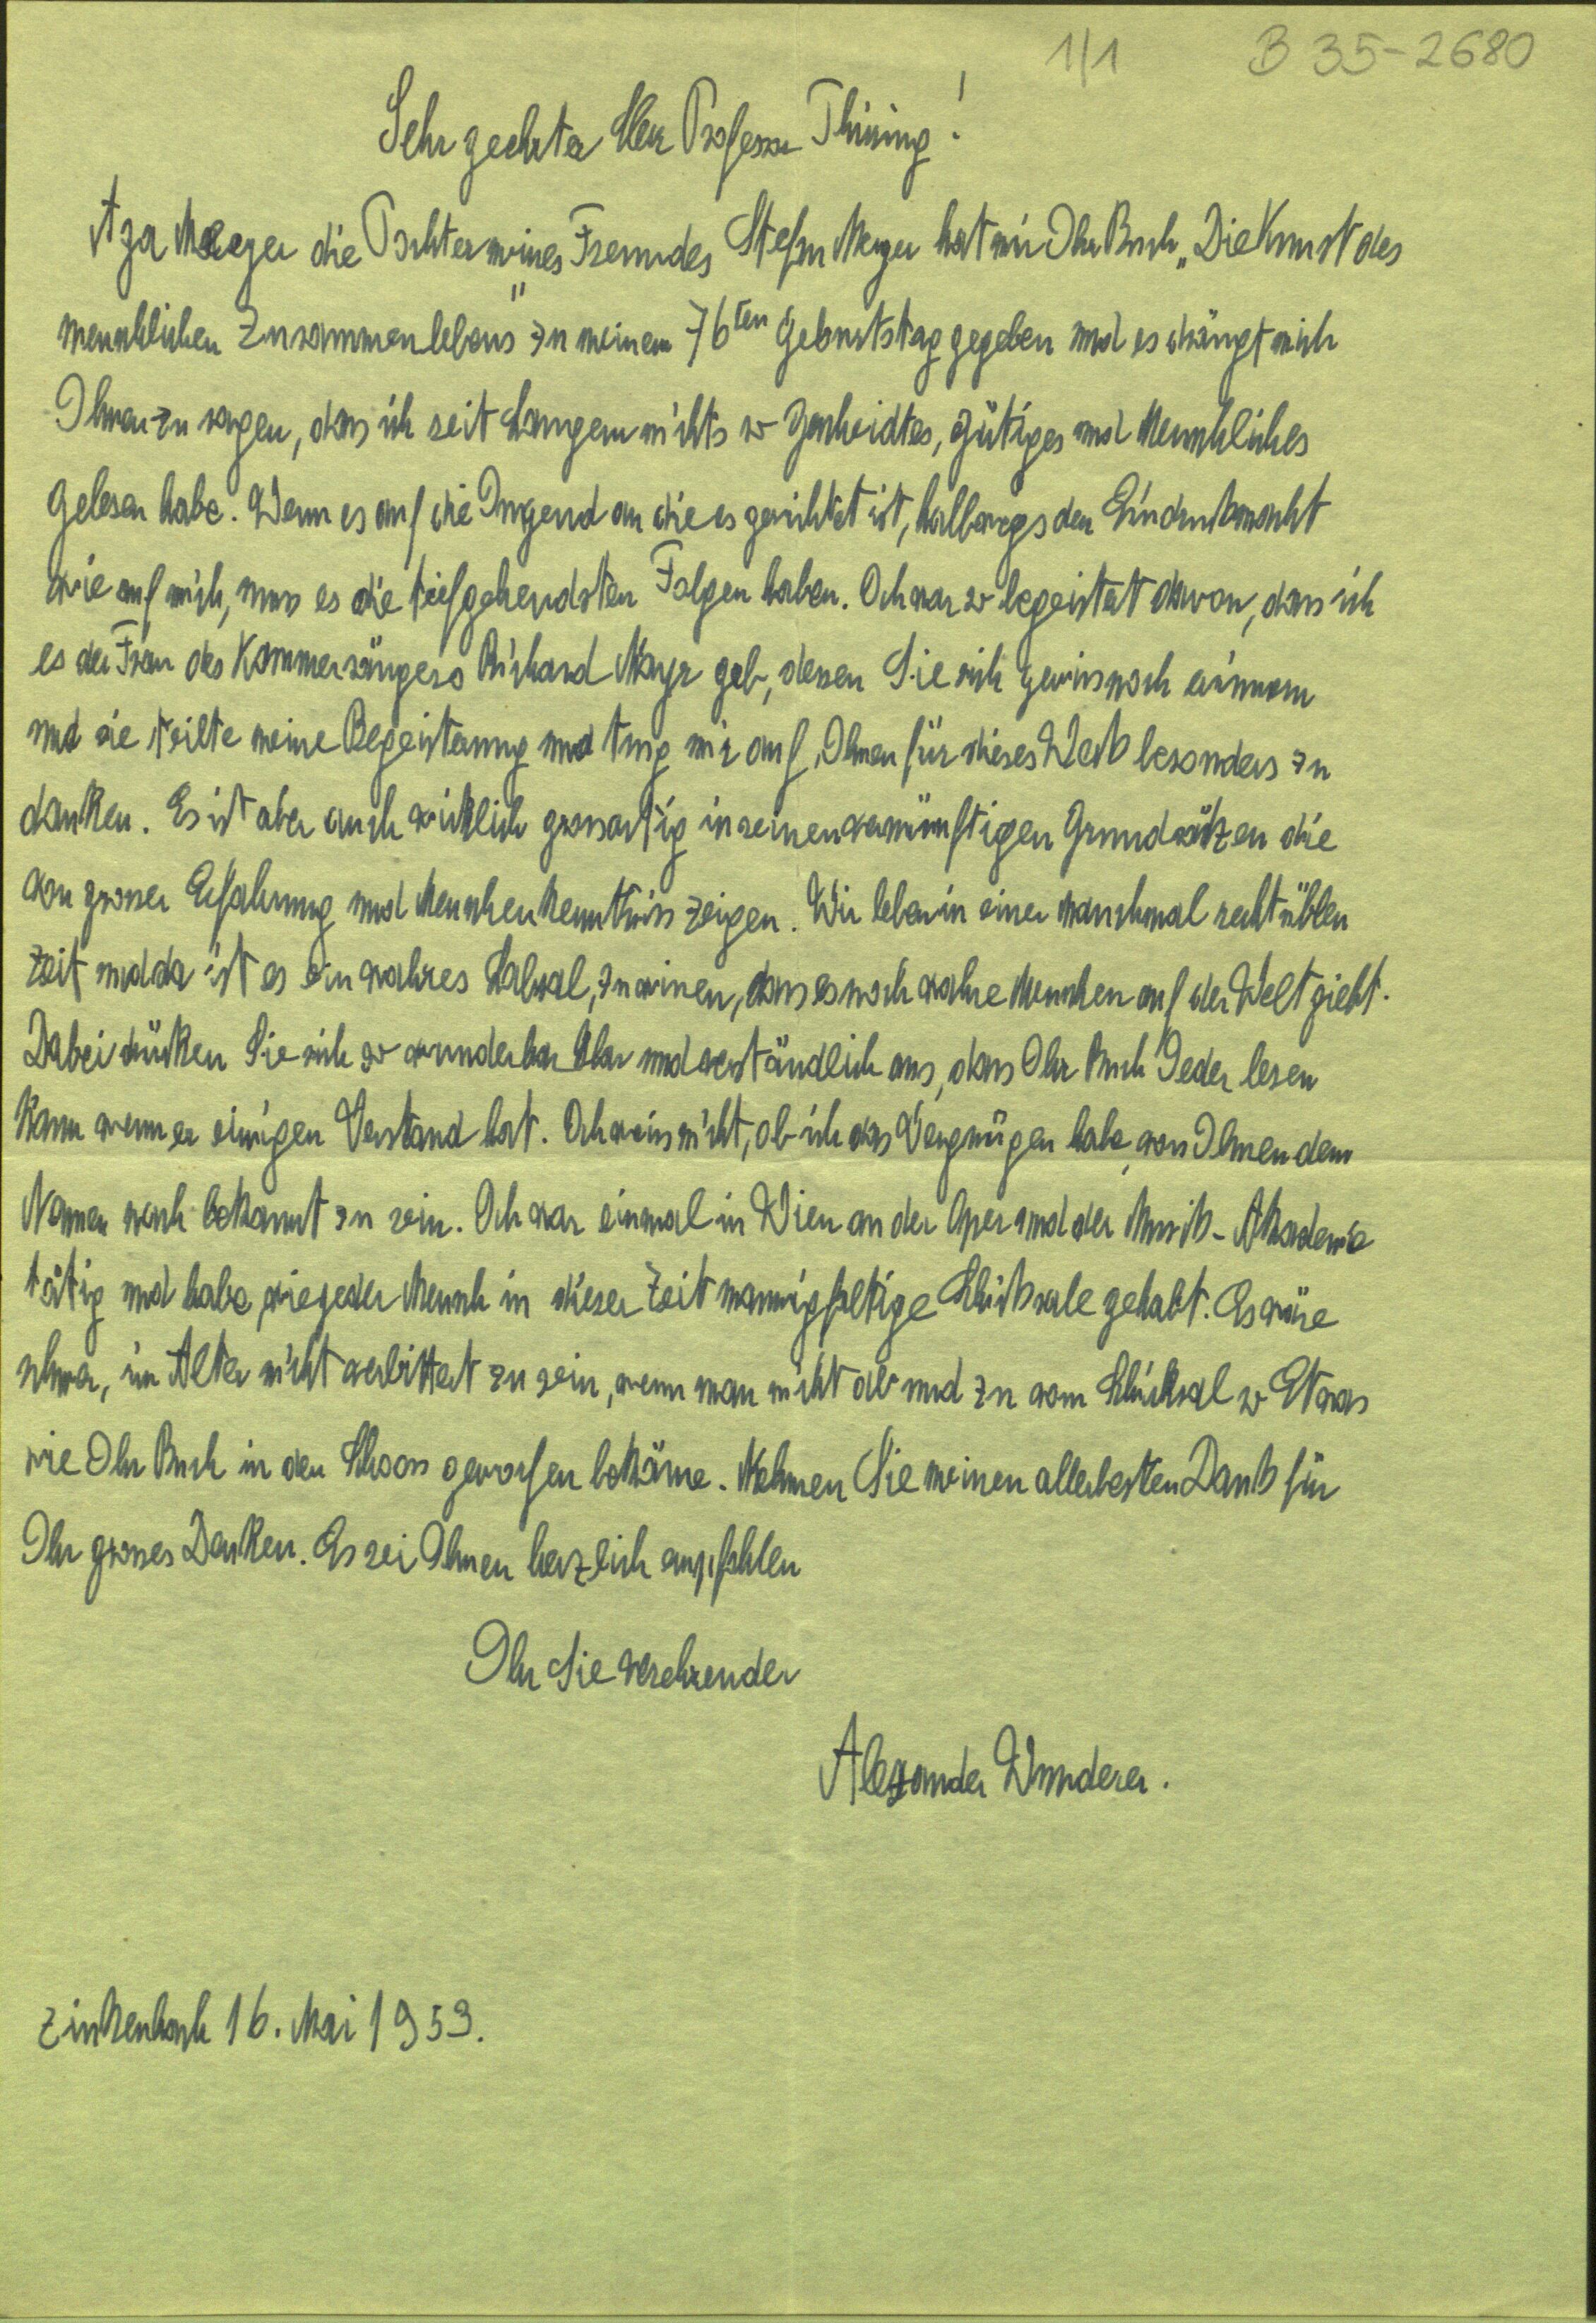 1/1 B 35-2680
Sehr geehrter Herr Professor Thirring!
Aza Meyer die Tochter meines Freundes Stefan Meyer hat mir Ihr Buch „Die Kunst des
menschlichen Zusammenlebens" zu meinem 76ten Geburtstag gegeben und es drängt mich
Ihnen zu sagen, dass ich seit Langem nichts so Gescheidtes, Gütiges und Menschliches
gelesen habe. Wenn es auf die Jugend an die es gerichtet ist, halbwegs den Eindruck macht
wie auf mich, muss es die tiefgehendsten Folgen haben. Ich war so begeistert davon, dass ich
es der Frau des Kammersängers Richard Mayr gab, dessen Sie sich gewiss noch erinnern
und sie teilte meine Begeisterung und trug mir auf, Ihnen für dieses Werk besonders zu
danken. Es ist aber auch wirklich grossartig in seinen vernünftigen Grundsätzen die
von grosser Erfahrung und Menschenkenntniss zeigen. Wir leben in einer manchmal recht üblen
Zeit und da ist es ein wahres Labsal, zu wissen, dass es noch wahre Menschen auf der Welt giebt.
Dabei drücken Sie sich so wunderbar klar und verständlich aus, dass Ihr Buch Jeder lesen
kann wenn er einigen Verstand hat. Ich weiss nicht, ob ich das Vergnügen habe, von Ihnen dem
Namen nach bekannt zu sein. Ich war einmal in Wien an der Oper und der Musik-Akademie
tätig und habe, wie jeder Mensch in dieser Zeit mannigfaltige Schicksale gehabt. Es wäre
schwer, im Alter nicht verbittert zu sein, wenn man nicht ab und zu vom Schicksal so Etwas
wie Ihr Buch in den Schoos geworfen bekäme. Nehmen Sie meinen allerbesten Dank für
Ihr grosses Denken. Es sei Ihnen herzlich empfohlen
Ihr Sie verehrender
Alexander Wunderer.
Zinkenbach 16. Mai 1953.